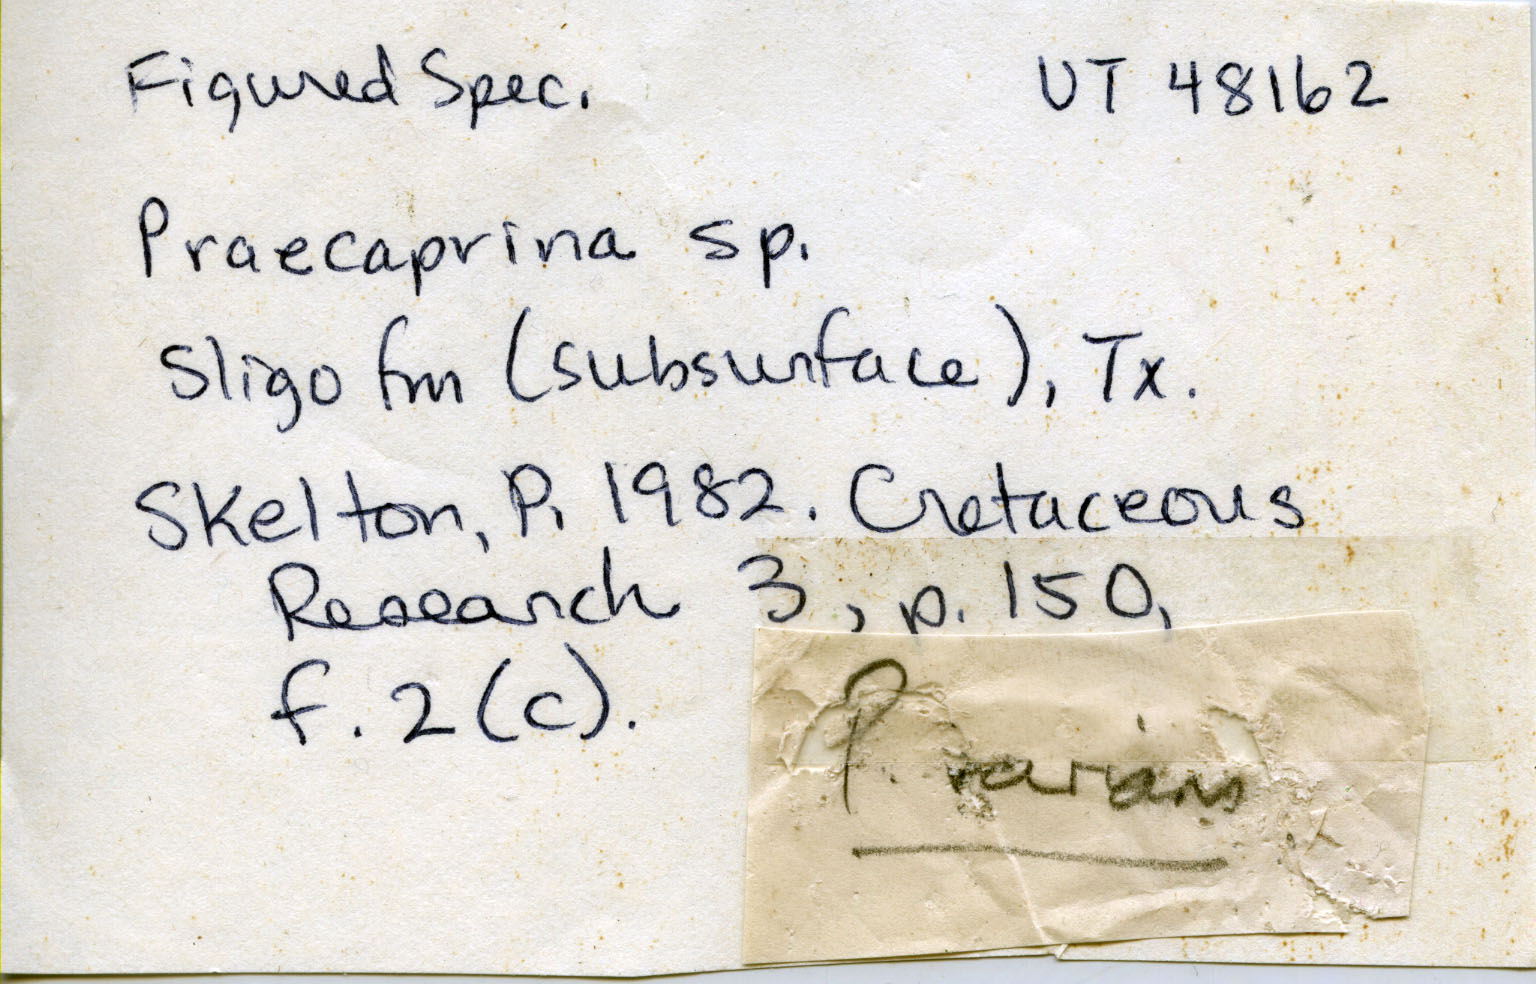 Figured Spec. UT 48162
Praecaprina sp.
Sligo fm (subsurface), Tx.
Skelton, P. 1982. Cretaceous
Research 3, p. 150,
f. 2(c).
P. varians